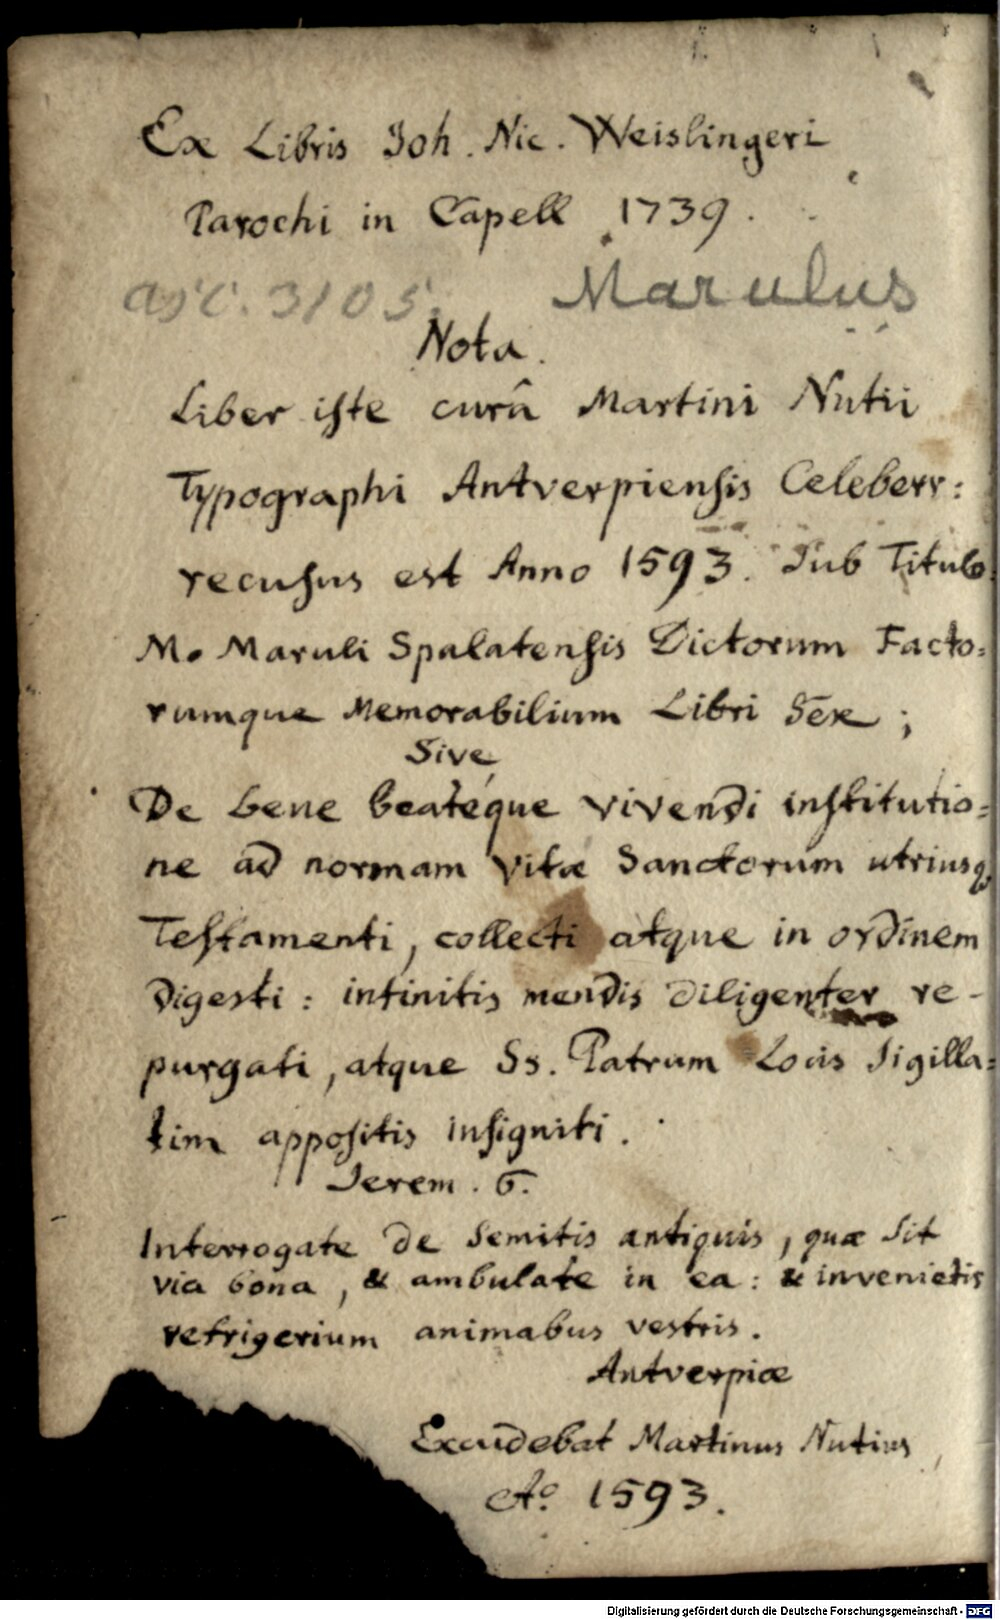 Ex Libris Joh. Nic. Weislingeri
Parochi in Capell 1739.
Asc. 3105. Marulus
Nota.
Liber iste curâ Martini Nutii
Typographi Antverpiensis Celeberr:
recusus est Anno 1593. Sub Titulo:
M. Maruli Spalatensis Dictorum Facto=
rumque Memorabilium Libri Sex;
Sive
De bene beatéque vivendi institutio=
ne ad normam vitæ Sanctorum utriusq
Testamenti, collecti atque in ordinem
digesti: infinitis mendis diligenter re-
purgati, atque Ss. Patrum Locis Sigilla=
tim appositis insigniti.
Jerem. 6.
Interrogate de Semitis antiquis, quæ Sit
via bona, & ambulate in ea: & invenietis
refrigerium animabus vestris.
Antverpiæ
Excudebat Martinus Nutius,
Ao. 1593.
Digitalisierung gefördert durch die Deutsche Forschungsgemeinschaft - DFG